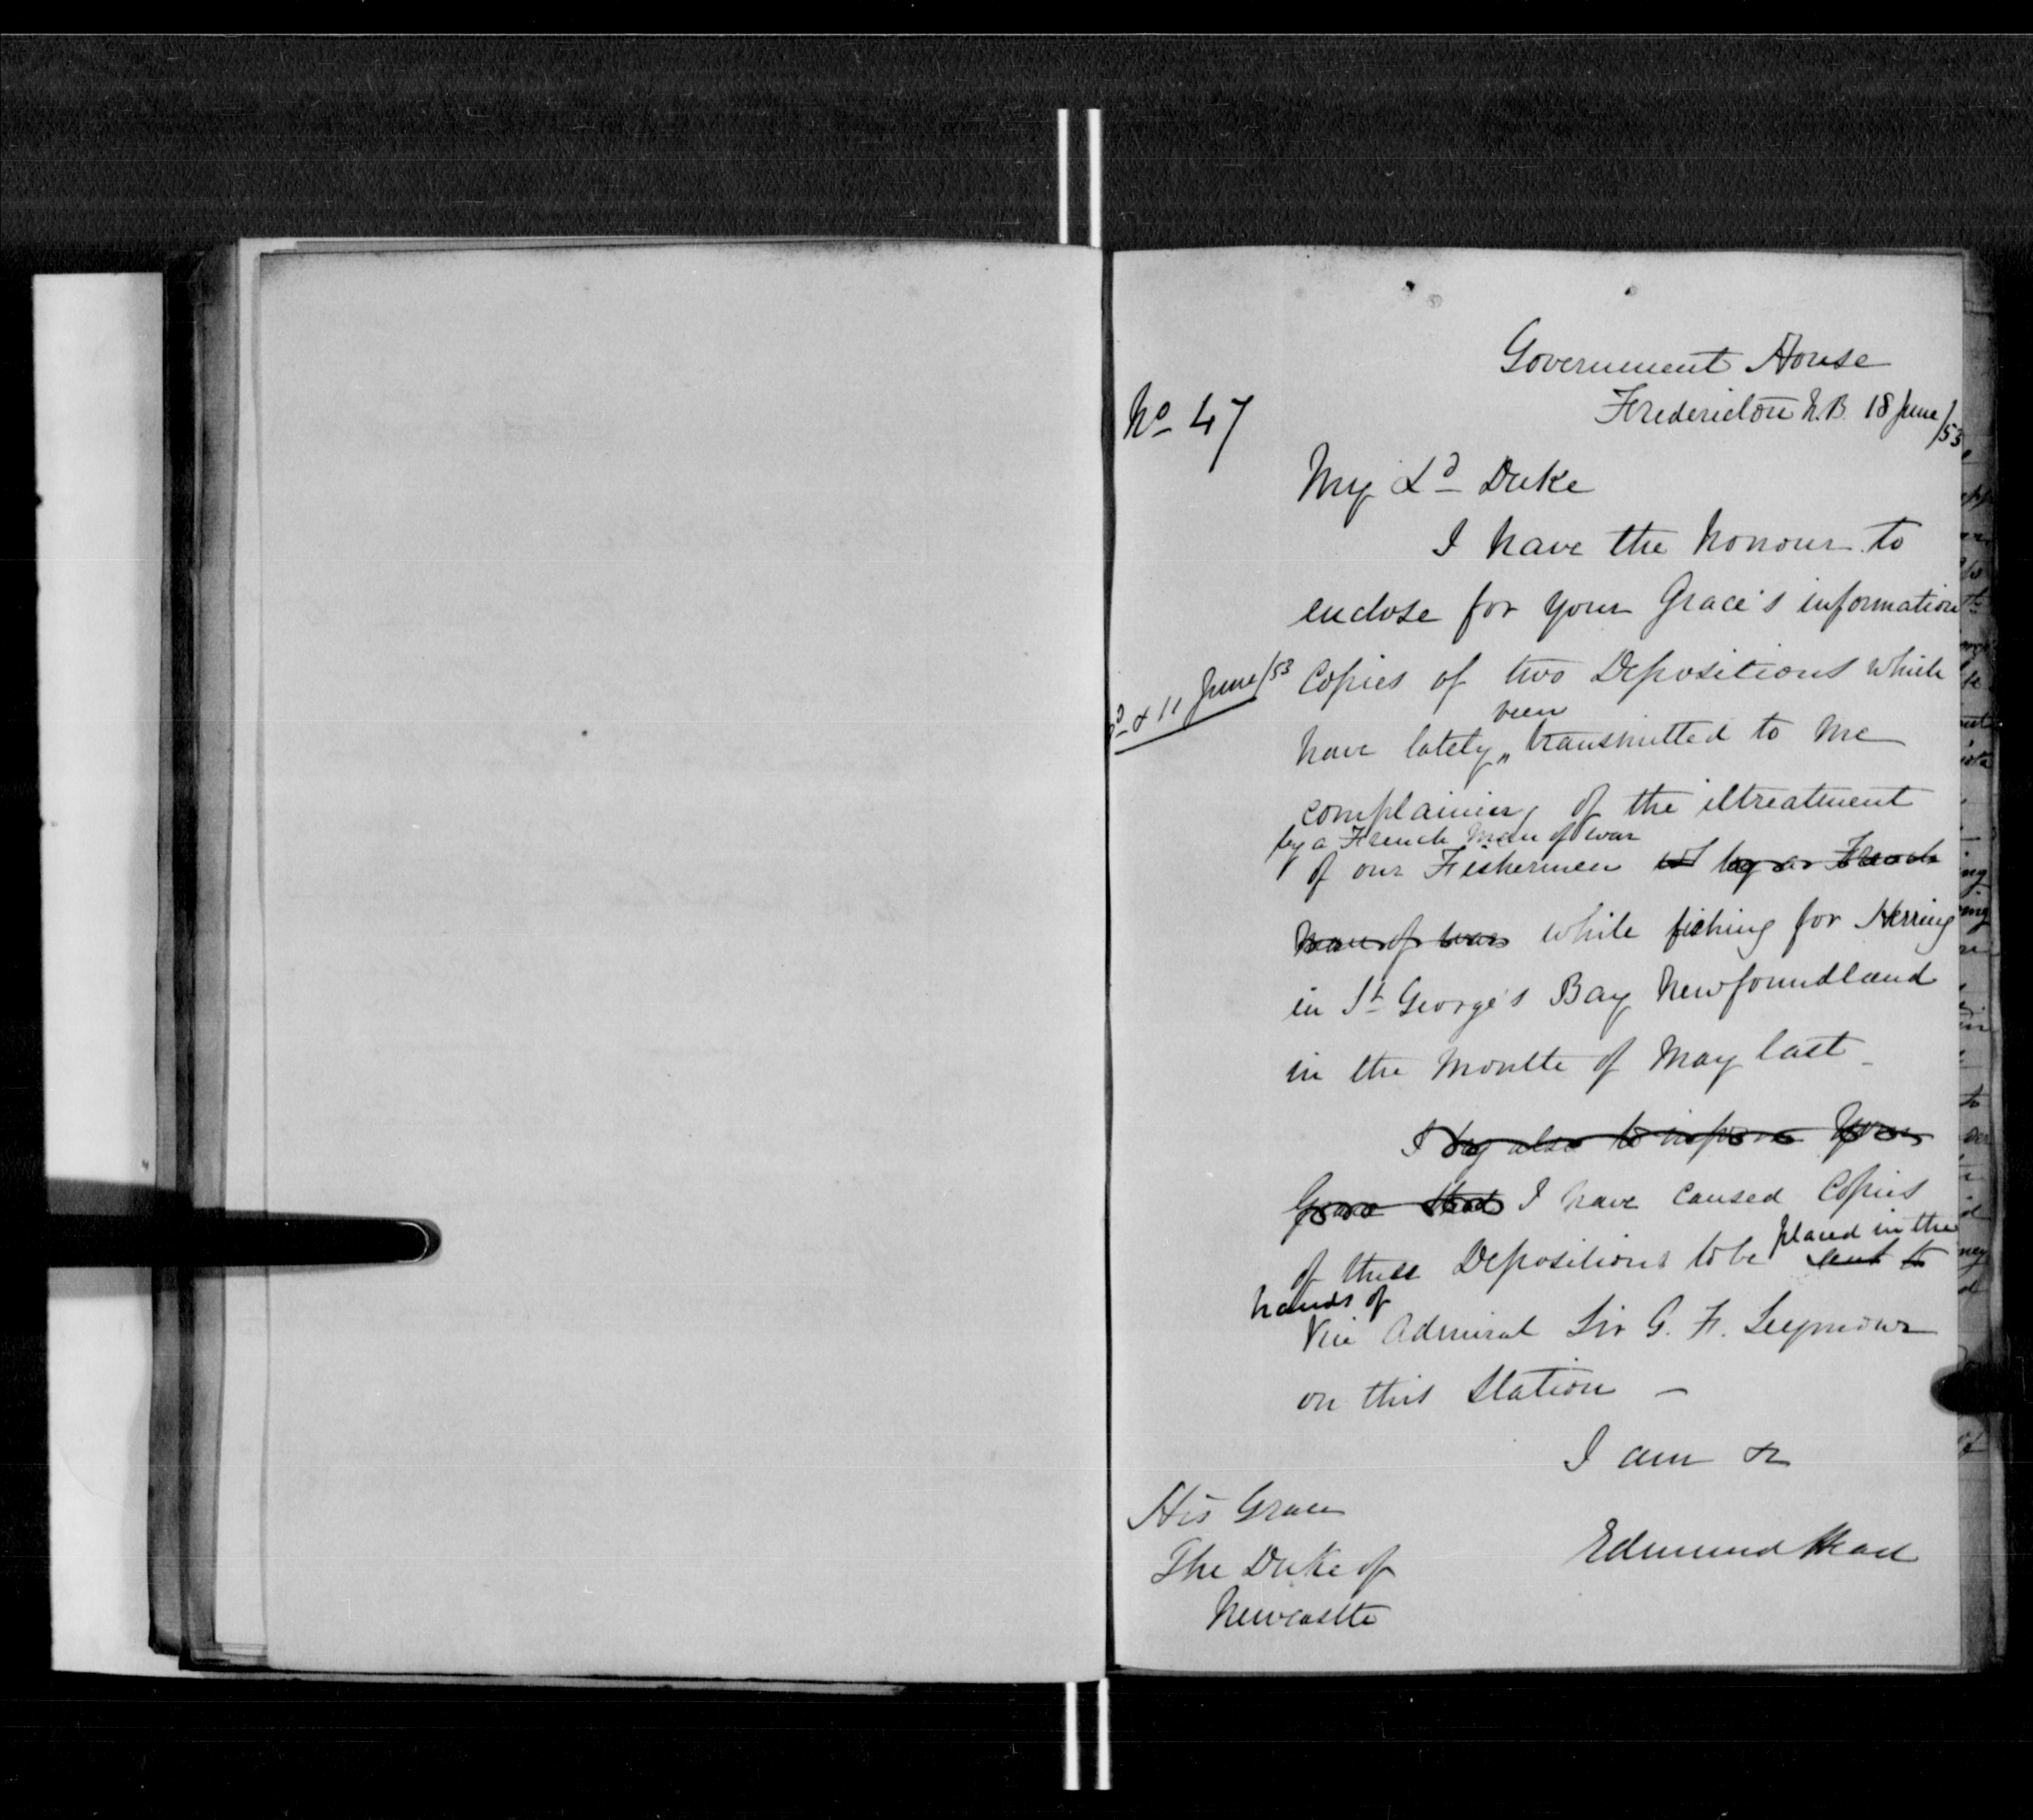 Government House
Fredericton N.B. 18 June/53
No 47
My Ld Duke
I have the honour to
enclose for your Grace's information
Copies of two Depositions which
d & 11 June/53
been
have lately „ transmitted to me
complaining of the iltreatment
by a French Man of war
of our Fishermen by a French
man of war while fishing for Herring
in St George's Bay Newfoundland
in the Month of May last
I beg also to inform Your
Grace that I have caused Copies
of these Depositions to be placed in the
sent to
hands of
Vice Admiral Sir G. F. Seymour
on this Station —
I am &
His Grace
The Duke of
Newcastle
Edmund Head